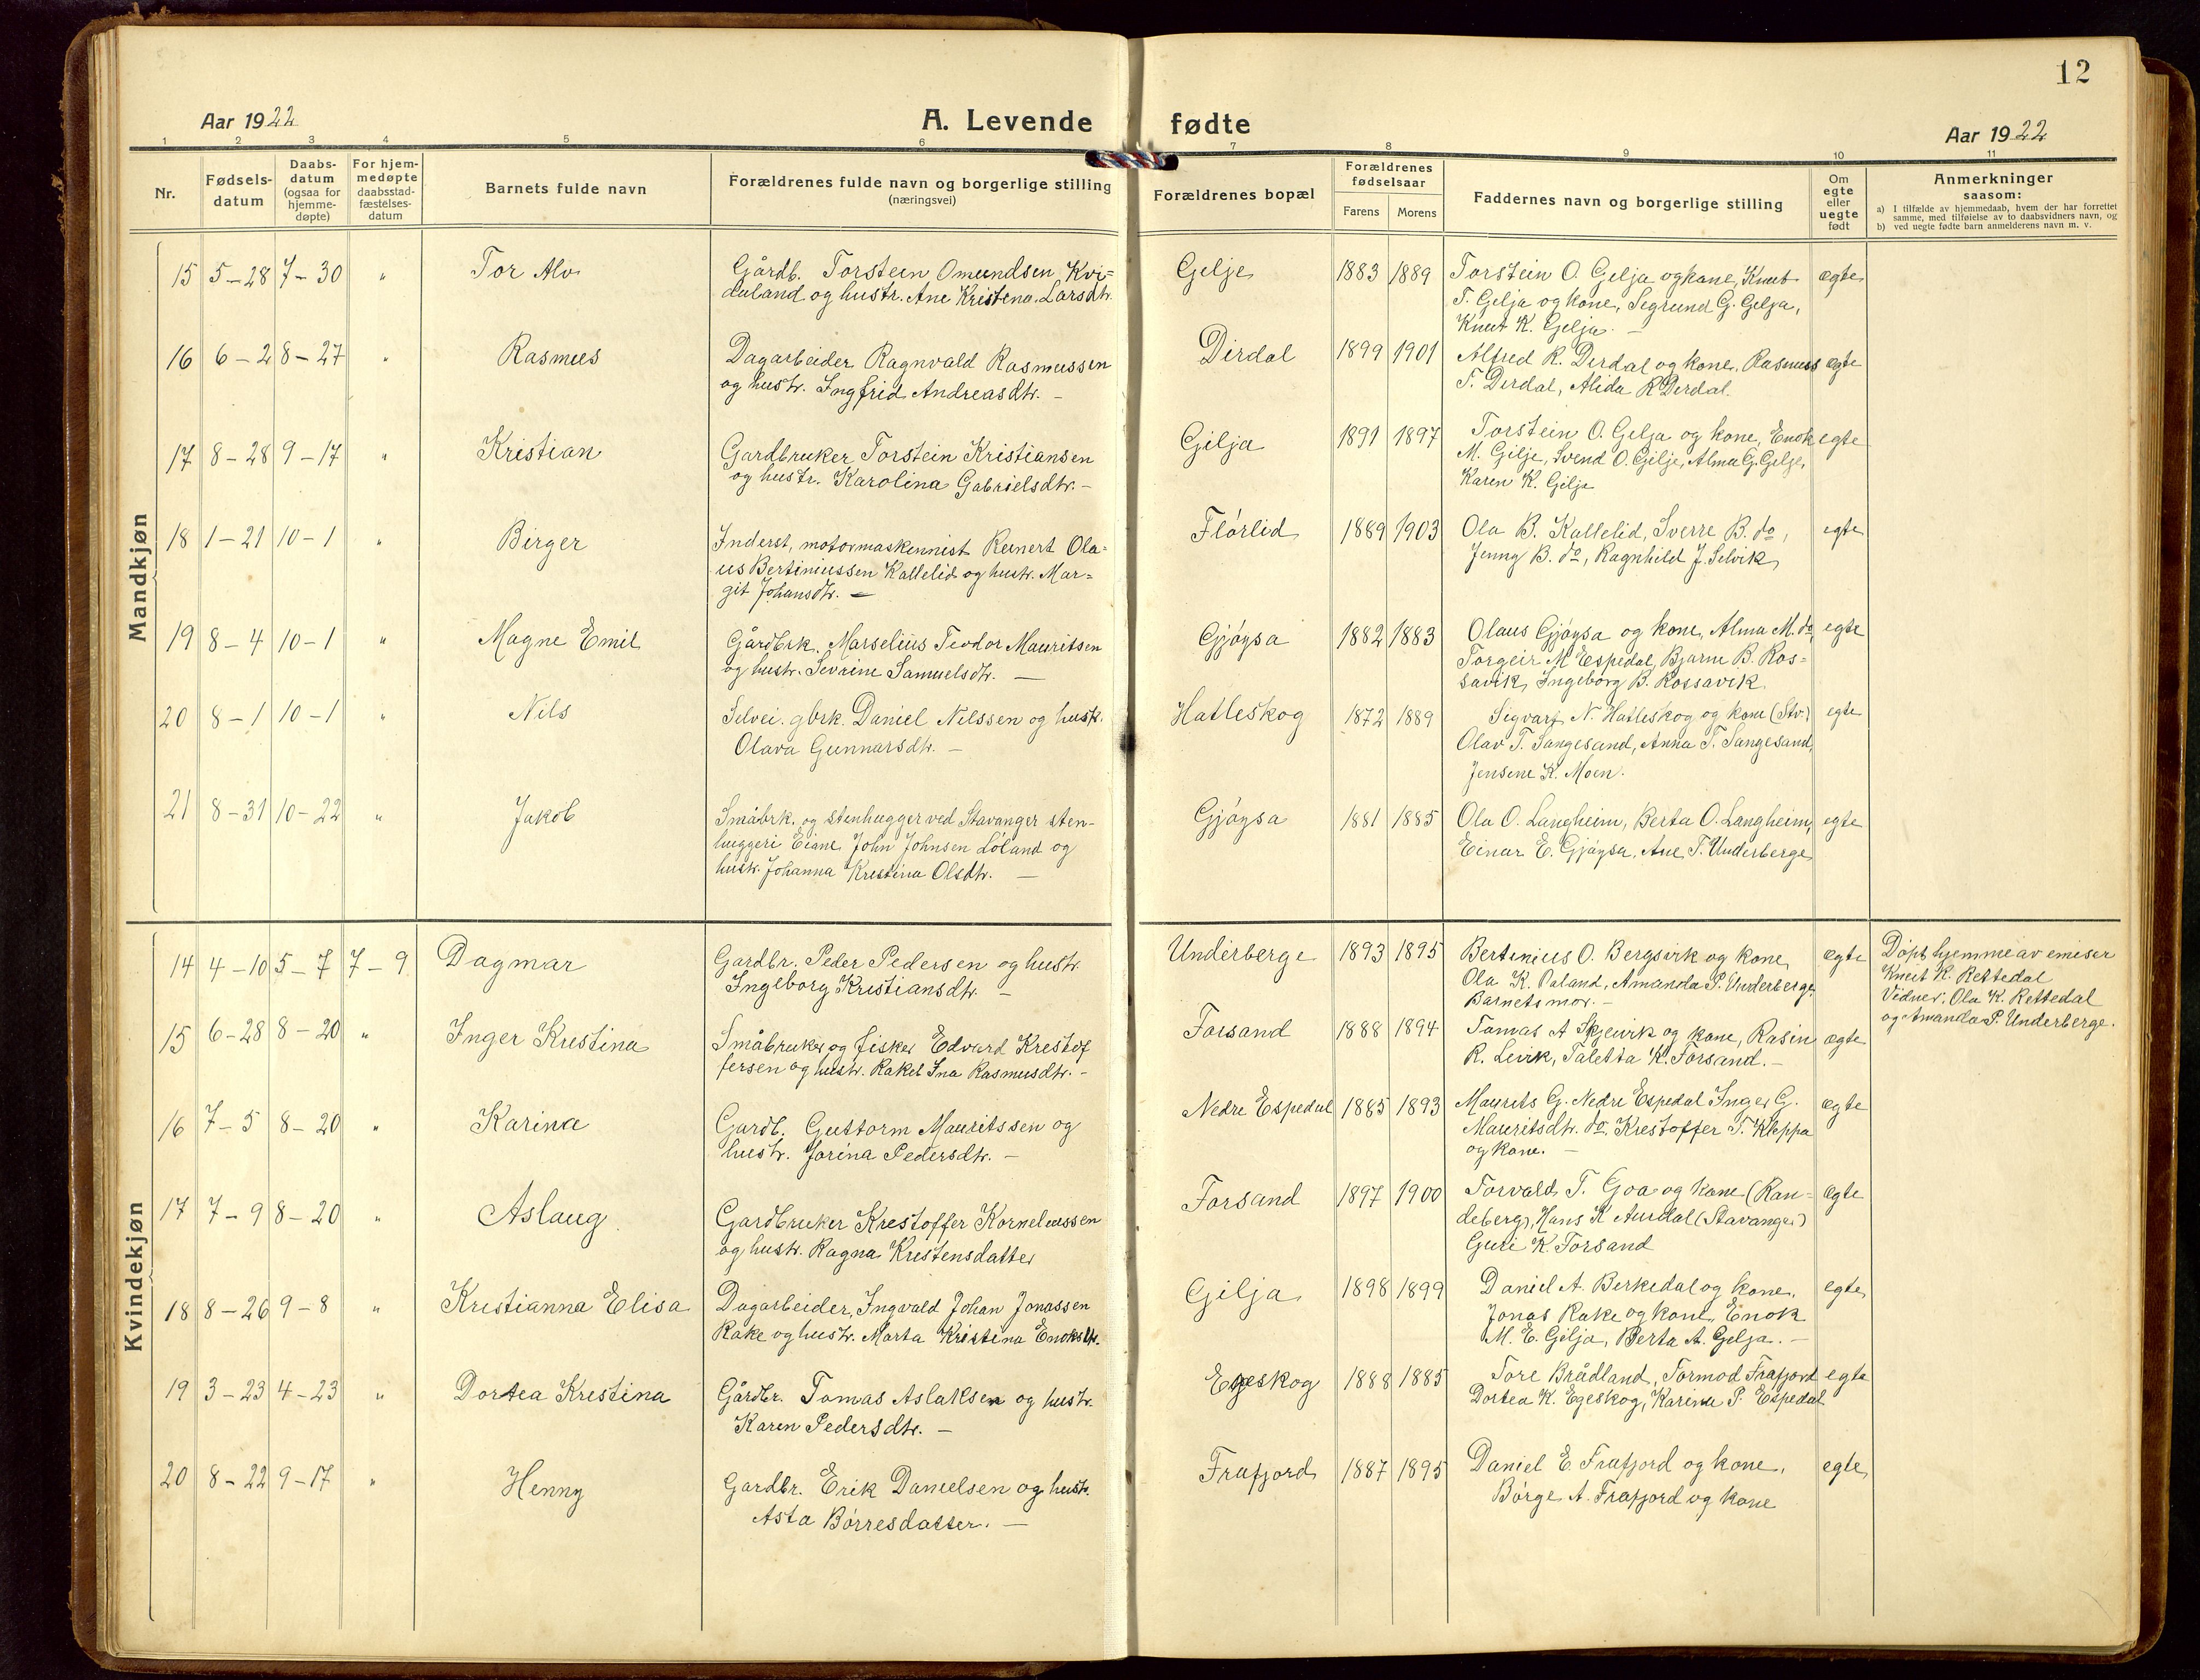 12
Aar 1922
A. Levende fødte
Aar 1922
1 2 3 4 5 6 7 8 9 10 11
Nr.
Fødsels-
datum
Daabs-
datum
(ogsaa for
hjemme-
døpte)
For hjem-
medøpte
daabsstad-
fæstelses-
datum
Barnets fulde navn
Forældrenes fulde navn og borgerlige stilling
(næringsvei)
Forældrenes bopæl
Forældrenes
fødselsaar
Farens Morens
Faddernes navn og borgerlige stilling
Om
egte
eller
uegte
født
Anmerkninger
saasom:
a) I tilfælde av hjemmedaab, hvem der har forrettet
samme, med tilføielse av to daabsvidners navn, og
b) ved uegte fødte barn anmelderens navn m. v.
Mandkjøn
15 5-28 7-30 " Tor Alv
Gårdb. Torstein Omundsen Kvi=
duland og hustr. Ane Kristena Larsdtr.
Gilje 1883 1889
Torstein O. Gilja og kone, Knut
T. Gilja og kone, Segrund G. Gelja,
Knut K. Gilja. -
egte
16 6-2 8-27 " Rasmus
Dagarbeider Ragnvald Rasmussen
og hustr. Ingfrid Andreasdtr. -
Dirdal 1899 1901
Alfred R. Dirdal og kone, Rasmus
T. Dirdal, Alida R Dirdal.
egte
17 8-28 9-17 " Kristian
Gardbruker Torstein Kristiansen
og hustr. Karolina Gabrielsdtr. -
Gilja 1891 1897
Torstein O. Gilja og kone, Enok
M. Gilje, Svend O. Gilje, Alma G. Gilje,
Karen K. Gilje
egte
18 1-21 10-1 " Birger
Inderst, motormaskinnist Reinert Ola=
us Bertiniussen Kallelid og hustr. Mar=
git Johansdtr. -
Flørlid 1889 1903
Ola B. Kallelid, Sverre B. do,
Jenny B. do, Ragnhild J. Selvik
egte
19 8-4 10-1 " Magne Emil
Gårdbrk. Marselius Teodor Mauritsen
og hustr. Sevrine Samuelsdtr. -
Gjøysa 1882 1883
Olaus Gjøysa og kone, Alma M. do,
Torgeir M Espedal, Bjarne B. Ros=
savik, Ingeborg B. Rossavik.
egte
20 8-1 10-1 " Nils
Selvei. gbrk. Daniel Nilssen og hustr.
Olava Gunnarsdtr. -
Hatleskog 1872 1889
Sigvart N. Hatleskog og kone (Stv.)
Olav T. Sangesand, Anna T. Sangesand,
Jensene K. Moen.
egte
21 8-31 10-22 " Jakob
Småbrk. og stenhugger ved Stavanger sten-
huggeri Eiane John Johnsen Løland og
hustr. Johanna Kristina Olsdtr. -
Gjøysa 1881 1885
Ola O. Langheim, Berta O. Langheim,
Einar E. Gjøysa, Ane T. Underberge
egte
Kvindekjøn
14 4-10 5-7 7-9 Dagmar
Gardbr. Peder Pedersen og hustr.
Ingeborg Kristiansdtr. -
Underberge 1893 1895
Bertinius O. Bergsvik og kone,
Ola K. Paland, Amanda P. Underberge,
Barnets mor. -
egte
Døpt hjemme av emisær
Knut K. Rettedal
Vidner: Ola K. Rettedal
og Amanda P. Underberge.
15 6-28 8-20 " Inger Kristina
Småbruker og fisker Edvard Kristof
fersen og hustr. Rakel Ina Rasmusdtr. -
Forsand 1888 1894
Tomas A Skjeivik og kone, Rasin
R. Levik, Taletta K. Forsand. -
egte
16 7-5 8-20 " Karina
Gardb. Guttorm Mauritssen og
hustr. Jorina Pedersdtr. -
Nedre Espedal 1885 1893
Maurits G. Nedre Espedal Inger G.
Mauritsdtr. do. Kristoffer T. Kleppa
og kone. -
egte
17 7-9 8-20 " Aslaug
Gardbruker Krestoffer Korneliussen
og hustr. Ragna Kristensdatter
Forsand 1897 1900
Torvald T. Goa og kone (Ran=
deberg), Hans K Aurdal (Stavanger)
Guri K. Forsand
egte
18 8-26 9-8 " Kristianna Elisa
Dagarbeider, Ingvald Johan Jonassen
Rake og hustr. Marta Kristina Enoksdtr.
Gilja 1898 1899
Daniel A. Berkedal og kone,
Jonas Rake og kone, Enok
M. E. Gilja, Berta A. Gilja. -
egte
19 3-23 4-23 " Dortea Kristina
Gårdbr. Tomas Aslaksen og hustr.
Karen Pedersdtr. -
Egeskog 1888 1885
Tore Brådland, Tormod Frafjord
Dortea K. Egeskog, Karina P. Espedal
egte
20 8-22 9-17 " Henny
Gardbr. Erik Danielsen og hustr.
Asta Børresdatter. -
Frafjord 1887 1895
Daniel E. Frafjord og kone,
Børge A. Frafjord og kone
egte